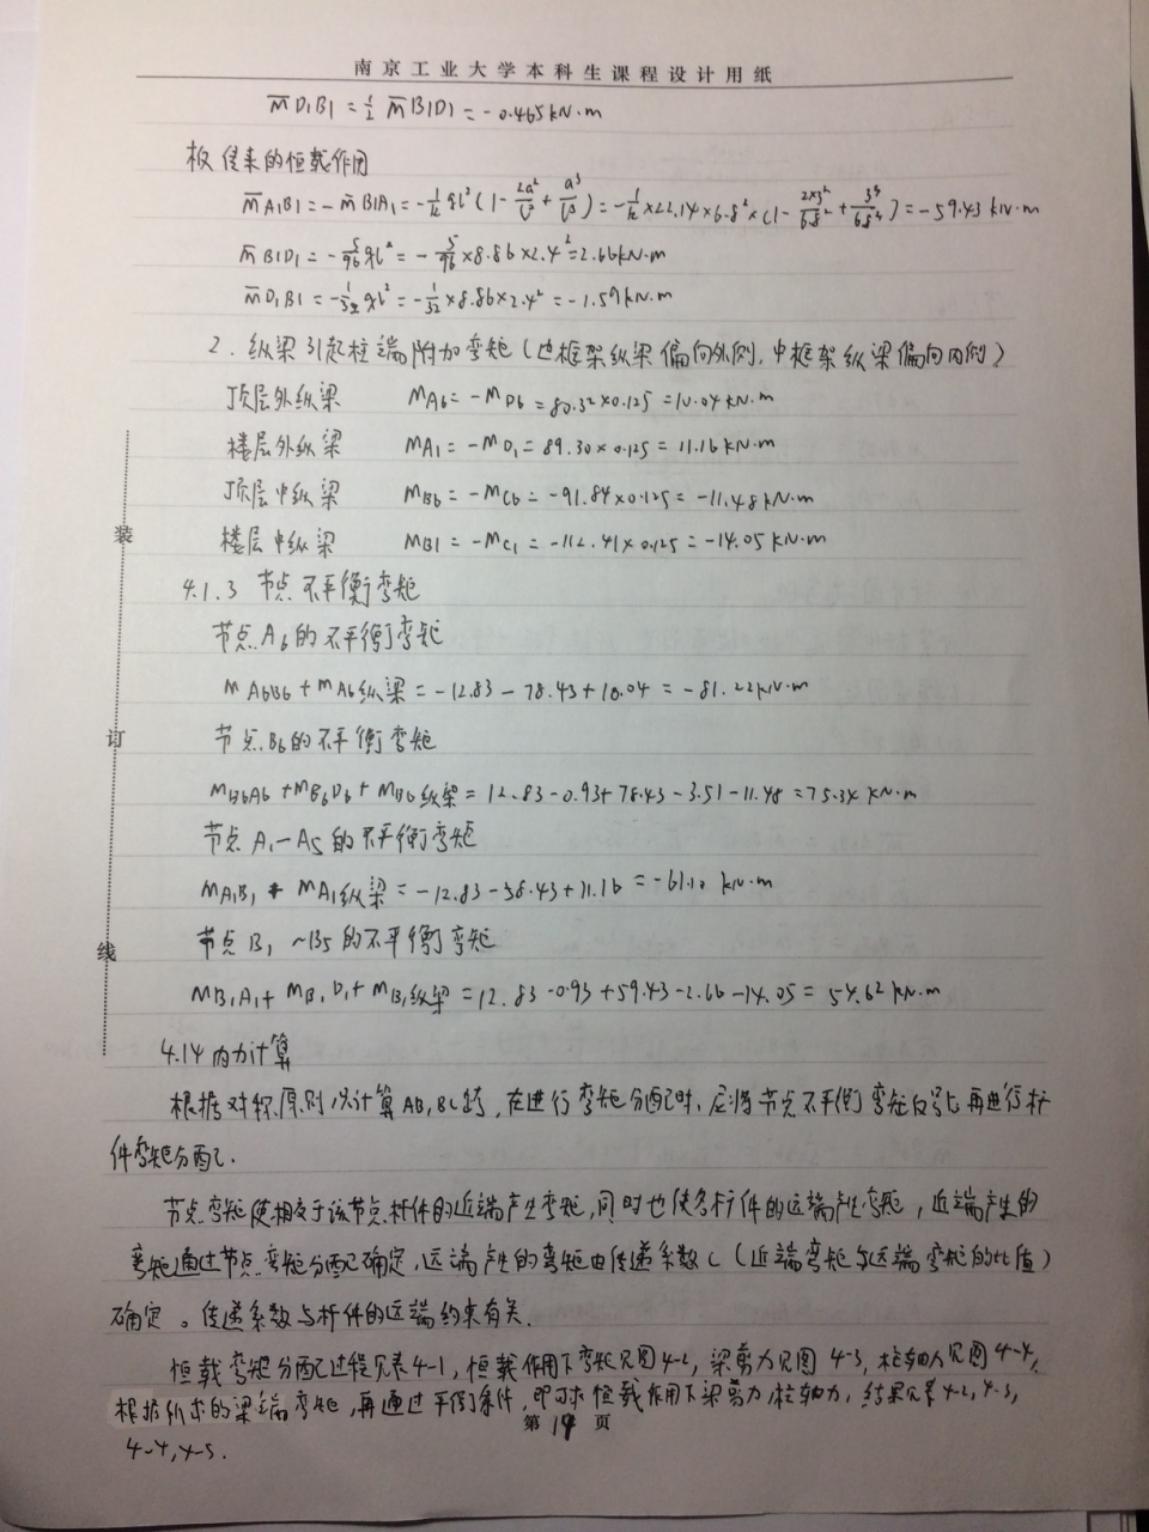 南京工业大学本科生课程设计用纸
M̄D₁B₁ = ½ M̄B₁D₁ = -0.465kN·m
板传来的恒载作用
M̄A₁B₁ = -M̄B₁A₁ = -1/12 ql²(1 - 2a²/l² + a³/l³) = -1/12×22.14×6.8²×(1 - 2×3²/6.8² + 3³/6.8³) = -59.43 kN·m
M̄B₁D₁ = -5/96 ql² = -5/96×8.86×2.4² = 2.66kN·m
M̄D₁B₁ = -1/32 ql² = -1/32×8.86×2.4² = -1.59kN·m
2. 纵梁引起柱端附加弯矩(边框架纵梁偏向外侧,中框架纵梁偏向内侧)
顶层外纵梁 MA6 = -MD6 = 80.32×0.125 = 10.04kN·m
楼层外纵梁 MA1 = -MD1 = 89.30×0.125 = 11.16kN·m
顶层中纵梁 MB6 = -MC6 = -91.84×0.125 = -11.48kN·m
楼层中纵梁 MB1 = -MC1 = -112.41×0.125 = -14.05kN·m
装
4.1.3 节点不平衡弯矩
节点A6的不平衡弯矩
MA6B6 + MA6纵梁 = -12.83 - 78.43 + 10.04 = -81.22kN·m
订
节点B6的不平衡弯矩
MB6A6 + MB6D6 + MB6纵梁 = 12.83 - 0.93 + 78.43 - 3.51 - 11.48 = 75.34 kN·m
节点A1-A5的不平衡弯矩
MA1B1 + MA1纵梁 = -12.83 - 58.43 + 11.16 = -61.10 kN·m
线
节点B1~B5的不平衡弯矩
MB1A1 + MB1D1 + MB1纵梁 = 12.83 - 0.93 + 59.43 - 2.66 - 14.05 = 54.62 kN·m
4.14 内力计算
根据对称原则只计算AB,BC跨,在进行弯矩分配时,应将节点不平衡弯矩反号后再进行杆
件弯矩分配.
节点弯矩使相交于该节点杆件的近端产生弯矩,同时也使各杆件的远端产生弯矩,近端产生的
弯矩通过节点弯矩分配确定,远端产生的弯矩由传递系数C(近端弯矩与远端弯矩的比值)
确定。传递系数与杆件的远端约束有关.
恒载弯矩分配过程见表4-1,恒载作用下弯矩见图4-2,梁剪力见图4-3,柱轴力见图4-4,
根据所求的梁端弯矩,再通过平衡条件,即可求恒载作用下梁剪力,柱轴力,结果见表4-2,4-3,
4-4,4-5.
第19页